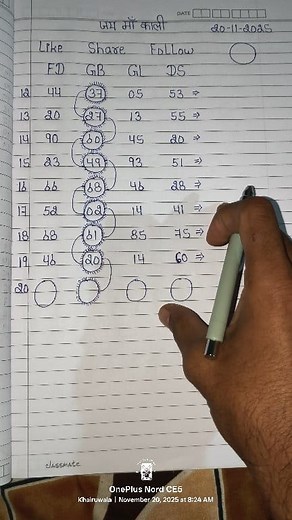 DATE
जय माँ काली
20-11-2025
Like Share Follow
FD GB GL DS
12 44 37 05 53 ⇒
13 20 27 13 55 ⇒
14 90 60 45 20 ⇒
15 23 49 93 51 ⇒
16 66 68 46 28 ⇒
17 52 02 14 41 ⇒
18 68 61 85 75 ⇒
19 46 20 14 60 ⇒
20
classmate
OnePlus Nord CE5
Khairuwala | November 20, 2025 at 8:24 AM